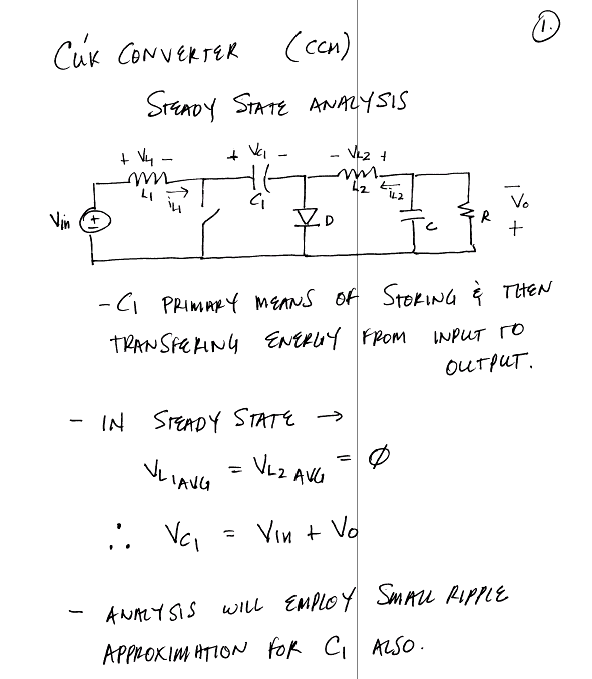 1.
Cúk CONVERTER (CCM)
STEADY STATE ANALYSIS
+ VL1 - + VC1 - - VL2 +
L1 iL1 C1 L2 iL2
Vin + - D C R - Vo +
- C1 PRIMARY MEANS OF STORING & THEN
TRANSFERING ENERGY FROM INPUT TO
OUTPUT.
- IN STEADY STATE →
VL1AVG = VL2 AVG = Ø
∴ VC1 = Vin + Vo
- ANALYSIS WILL EMPLOY SMALL RIPPLE
APPROXIMATION FOR C1 ALSO.